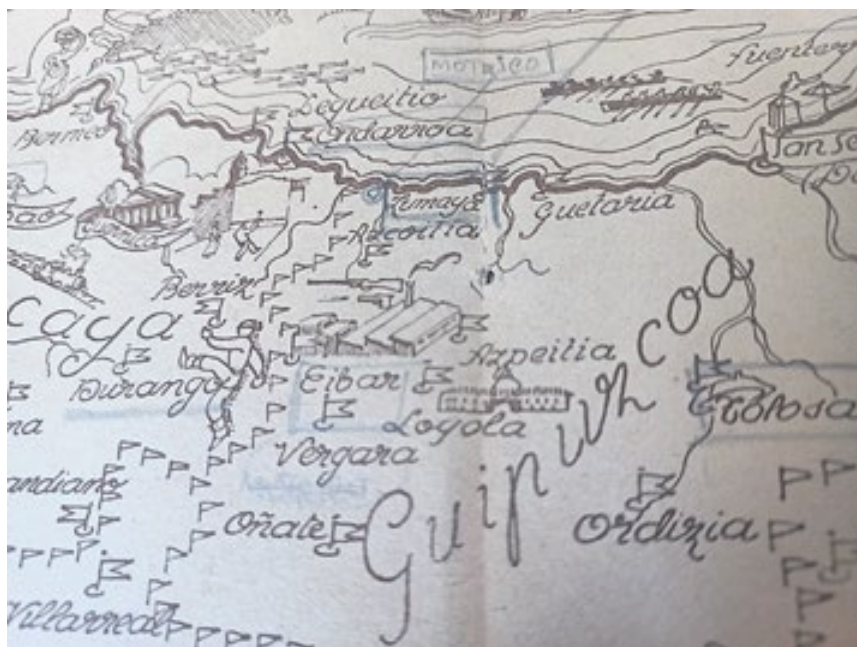 MOTRICO
Fuenterr
Lequeitio
Ondarroa
Bermeo
San Se
Zumaya
Guetaria
bao
Guernica
Azcoitia
Berriz
caya
Azpeitia
Durango
Eibar
Loyola
Tolosa
na
Vergara
Guipuzcoa
andiano
Oñate
Ordizia
Villarreal